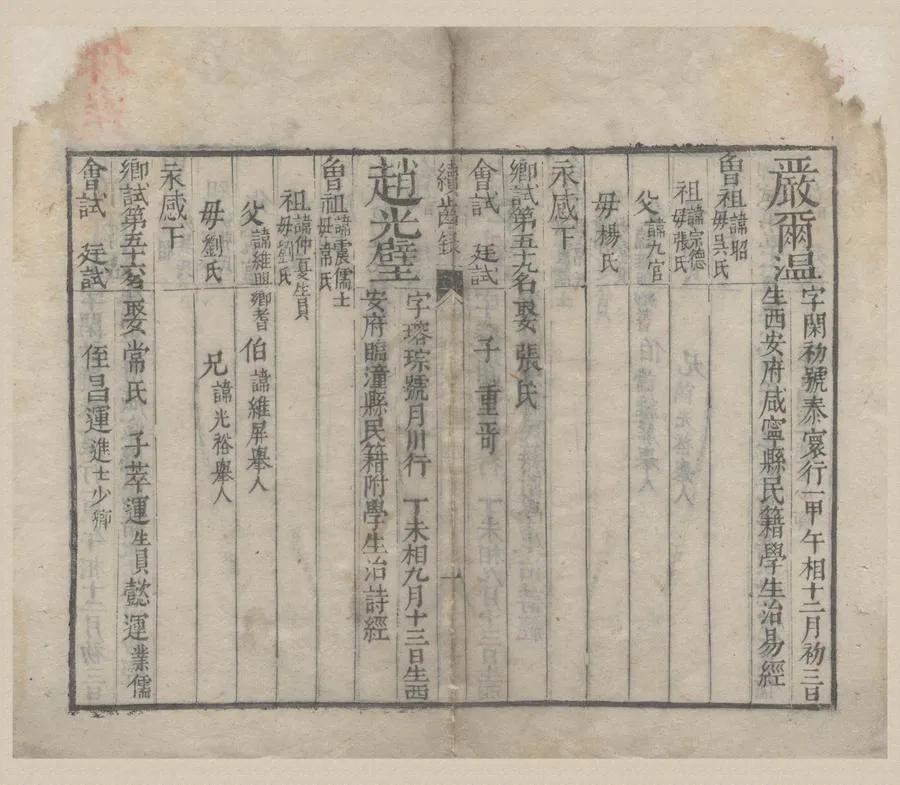 嚴爾溫
字閑初號泰寰行一甲午相十二月初三日
生西安府咸寧縣民籍學生治易經
曾祖諱昭
母吳氏
祖諱宗德
母張氏
父諱九官
母楊氏
永感下
鄉試第五十九名娶張氏
會試 廷試 子重哥
續齒錄
一
趙光璧
字瑢琮號月川行 丁未相九月十三日生西
安府臨潼縣民籍附學生治詩經
曾祖諱震儒士
母常氏
祖諱仲夏生員
母劉氏
父諱維興鄉耆 伯諱維屏舉人
母劉氏 兄諱光裕舉人
永感下
鄉試第五十六名娶常氏 子萃運生員懿運業儒
會試 廷試 侄昌運進士少卿